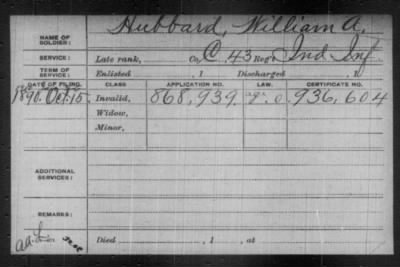 NAME OF SOLDIER: Hubbard, William A.
SERVICE: Late rank, Co. C 43 Reg't Ind Inf
TERM OF SERVICE: Enlisted , 1 Discharged , 1
DATE OF FILING. CLASS APPLICATION NO. LAW. CERTIFICATE NO.
1890. Oct. 15. Invalid, 868,939 936,604
Widow,
Minor,
ADDITIONAL SERVICES:
REMARKS:
Died , 1 , at